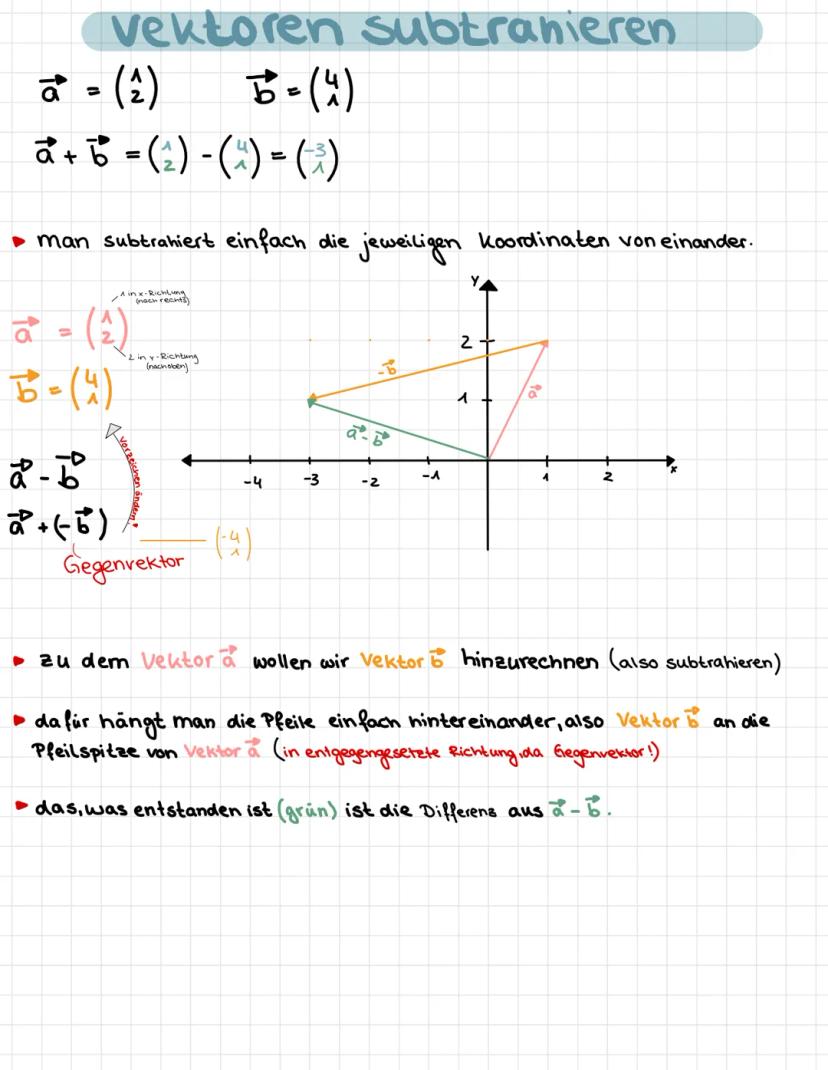 Vektoren subtrahieren
a⃗ = (1 2) b⃗ = (4 1)
a⃗ + b⃗ = (1 2) - (4 1) = (-3 1)
man subtrahiert einfach die jeweiligen Koordinaten voneinander.
1 in x-Richtung
(nach rechts)
a⃗ = (1 2)
2 in y-Richtung
(nach oben)
b⃗ = (4 1)
Vorzeichen ändern!
a⃗ - b⃗
a⃗ + (-b⃗)
(-4 1)
Gegenvektor
y
2
1
-4 -3 -2 -1 1 2
x
-b⃗
a⃗
a⃗ - b⃗
zu dem Vektor a⃗ wollen wir Vektor b⃗ hinzurechnen (also subtrahieren)
dafür hängt man die Pfeile einfach hintereinander, also Vektor b⃗ an die
Pfeilspitze von Vektor a⃗ (in entgegengesetzte Richtung, da Gegenvektor!)
das, was entstanden ist (grün) ist die Differenz aus a⃗ - b⃗.